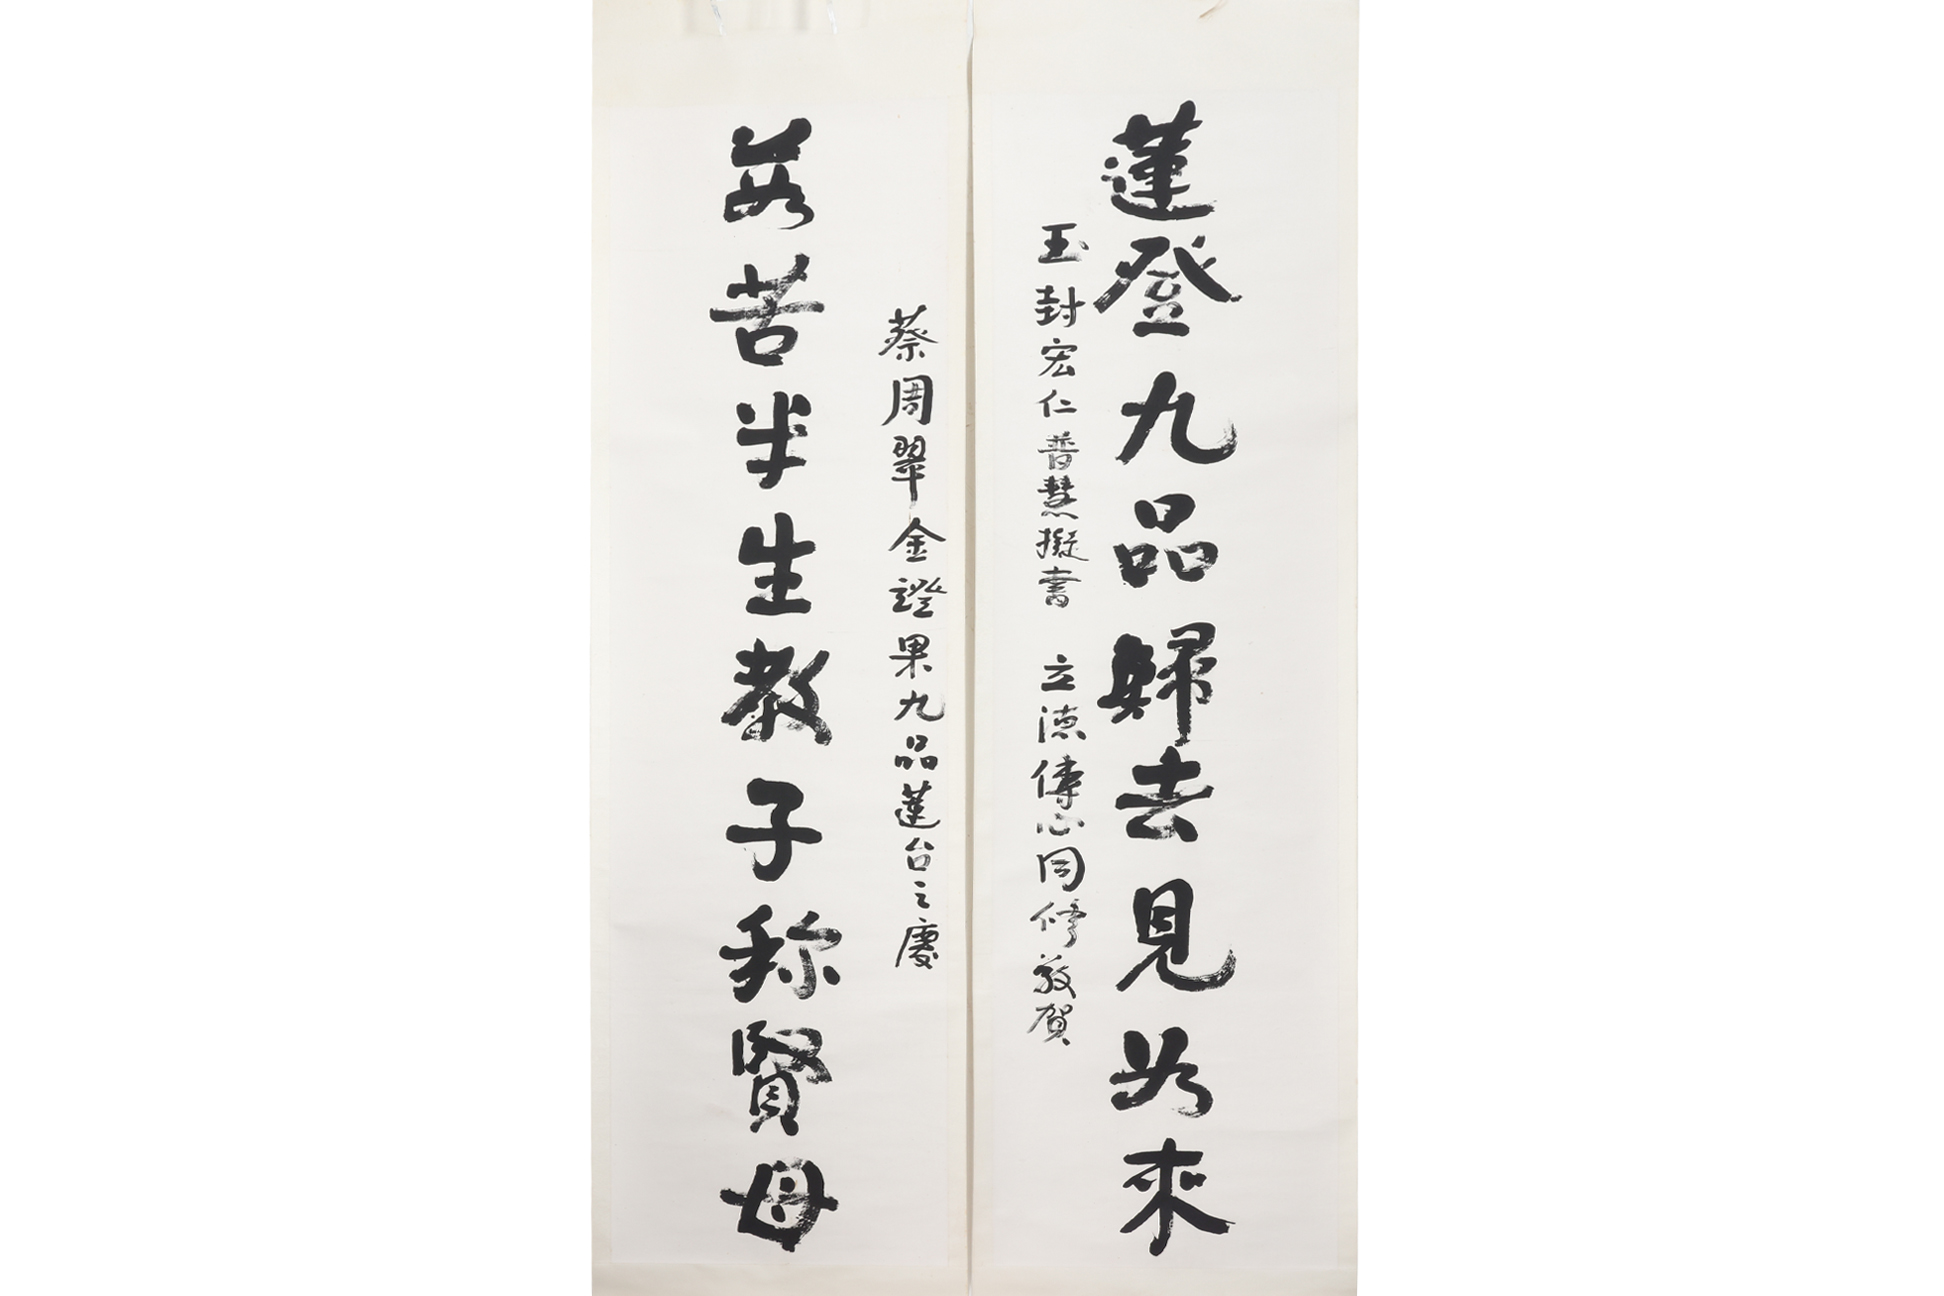 蓮登九品歸去見如來
玉封宏仁普慧擬書 立德傳心同修敬賀
蔡周翠金證果九品蓮台之慶
茹苦半生教子称賢母